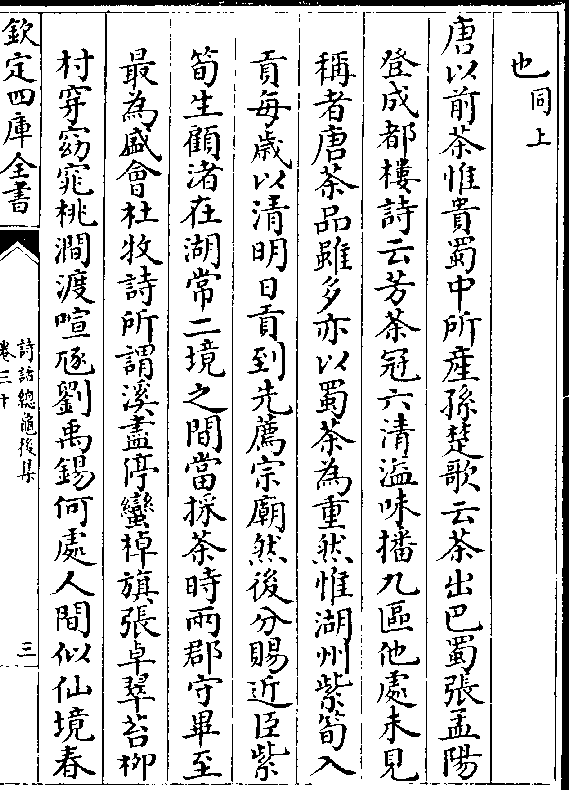 也同上
唐以前茶惟貴蜀中所產孫楚歌云茶出巴蜀張孟陽
登成都樓詩云芳茶冠六清溢味播九區他處未見
稱者唐茶品雖多亦以蜀茶為重然惟湖州紫筍入
貢每歲以清明日貢到先薦宗廟然後分賜近臣紫
筍生顧渚在湖常二境之間當採茶時兩郡守畢至
最為盛會杜牧詩所謂溪盡停蠻棹旗張卓翠苔柳
村穿窈窕桃澗渡喧豗劉禹錫何處人間似仙境春
欽定四庫全書
詩話總龜後集
卷三十
三